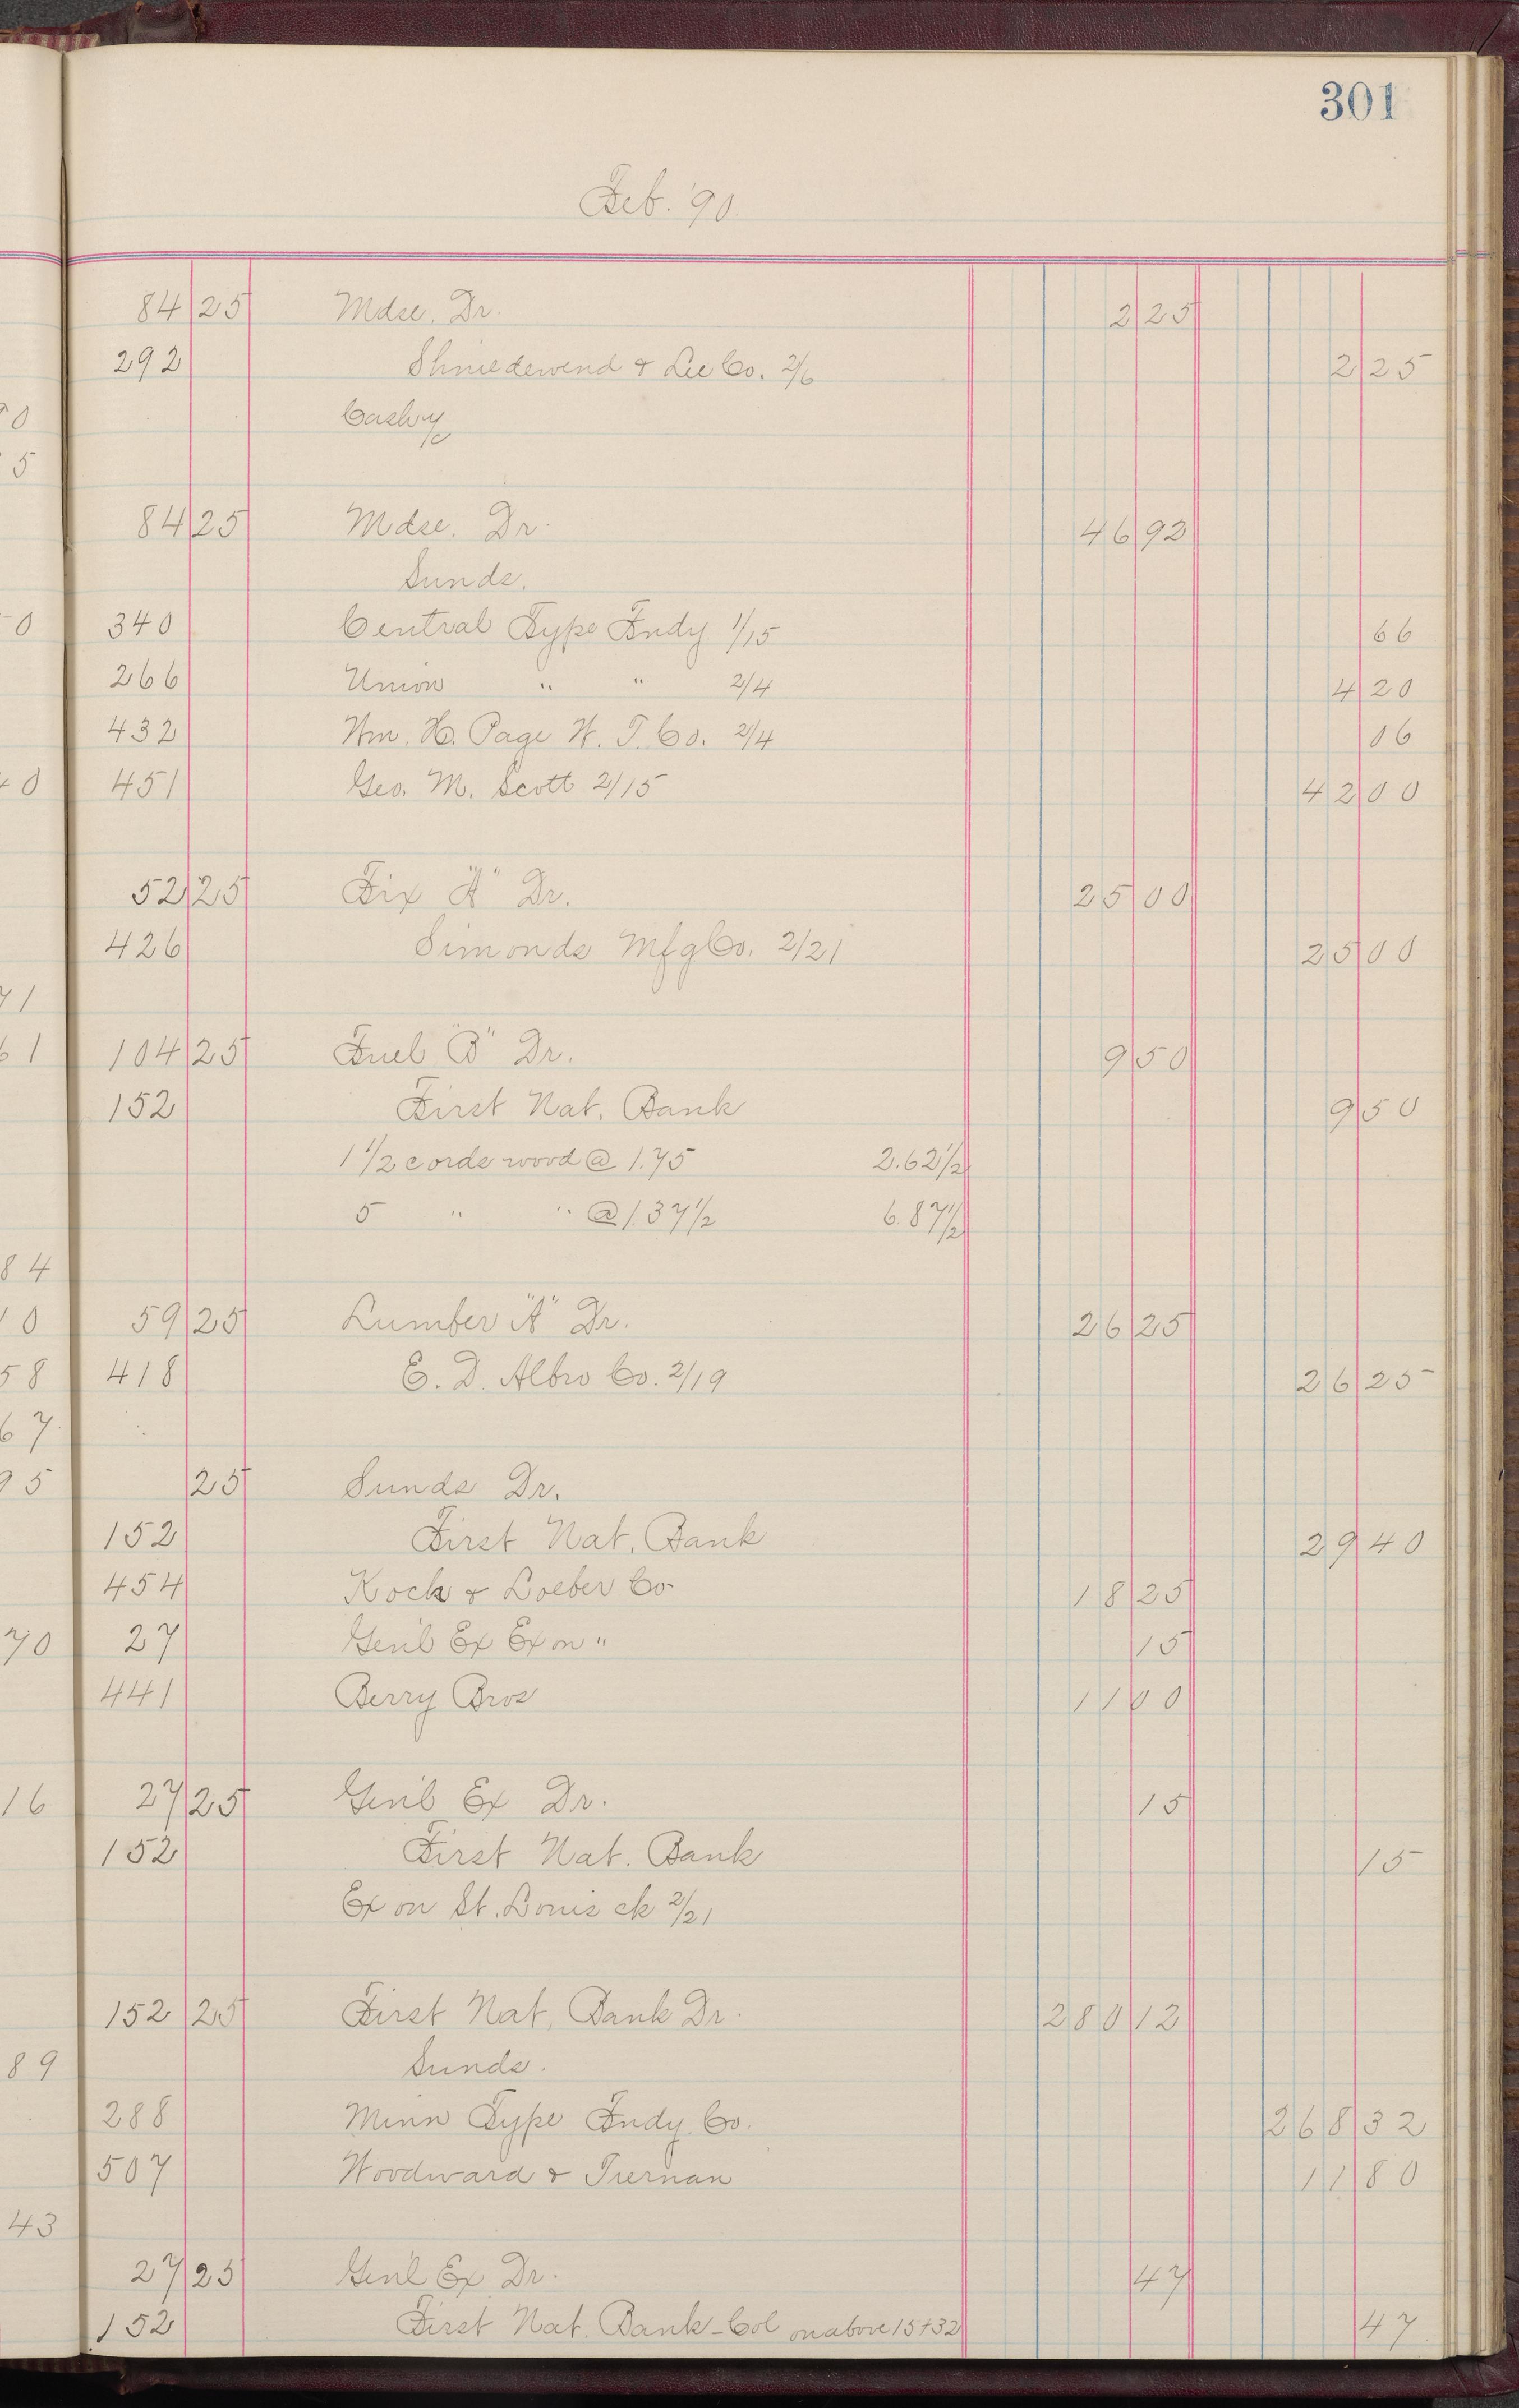 301
Feb. '90.
84 25 Mdse. Dr. 2 25
292 Shniedewend & Lee Co. 2/6 2 25
84 25 Mdse. Dr. 46 92
Sunds.
340 Central Type Fndy 1/15 66
266 Union " " 2/4 4 20
432 Wm. H. Page W. T. Co. 2/4 06
451 Geo. M. Scott 2/15 42 00
52 25 Fix "A" Dr. 25 00
426 Simonds Mfg Co. 2/21 25 00
104 25 Fuel "B" Dr. 9 50
152 First Nat. Bank 9 50
1 1/2 cords wood @ 1.75 2.62 1/2
5 " " @ 1.37 1/2 6.87 1/2
59 25 Lumber "A" Dr. 26 25
418 E. D. Albro Co. 2/19 26 25
25 Sunds Dr.
152 First Nat. Bank 29 40
454 Kock & Loeber Co 18 25
27 Gen'l Ex Ex on " 15
441 Berry Bros 11 00
27 25 Gen'l Ex Dr. 15
152 First Nat. Bank 15
Ex on St. Louis ck 2/21
152 25 First Nat. Bank Dr. 280 12
Sunds.
288 Minn Type Fndy Co. 268 32
507 Woodward & Tiernan 11 80
27 25 Gen'l Ex Dr. 47
152 First Nat. Bank - Col on above 15 + 32 47